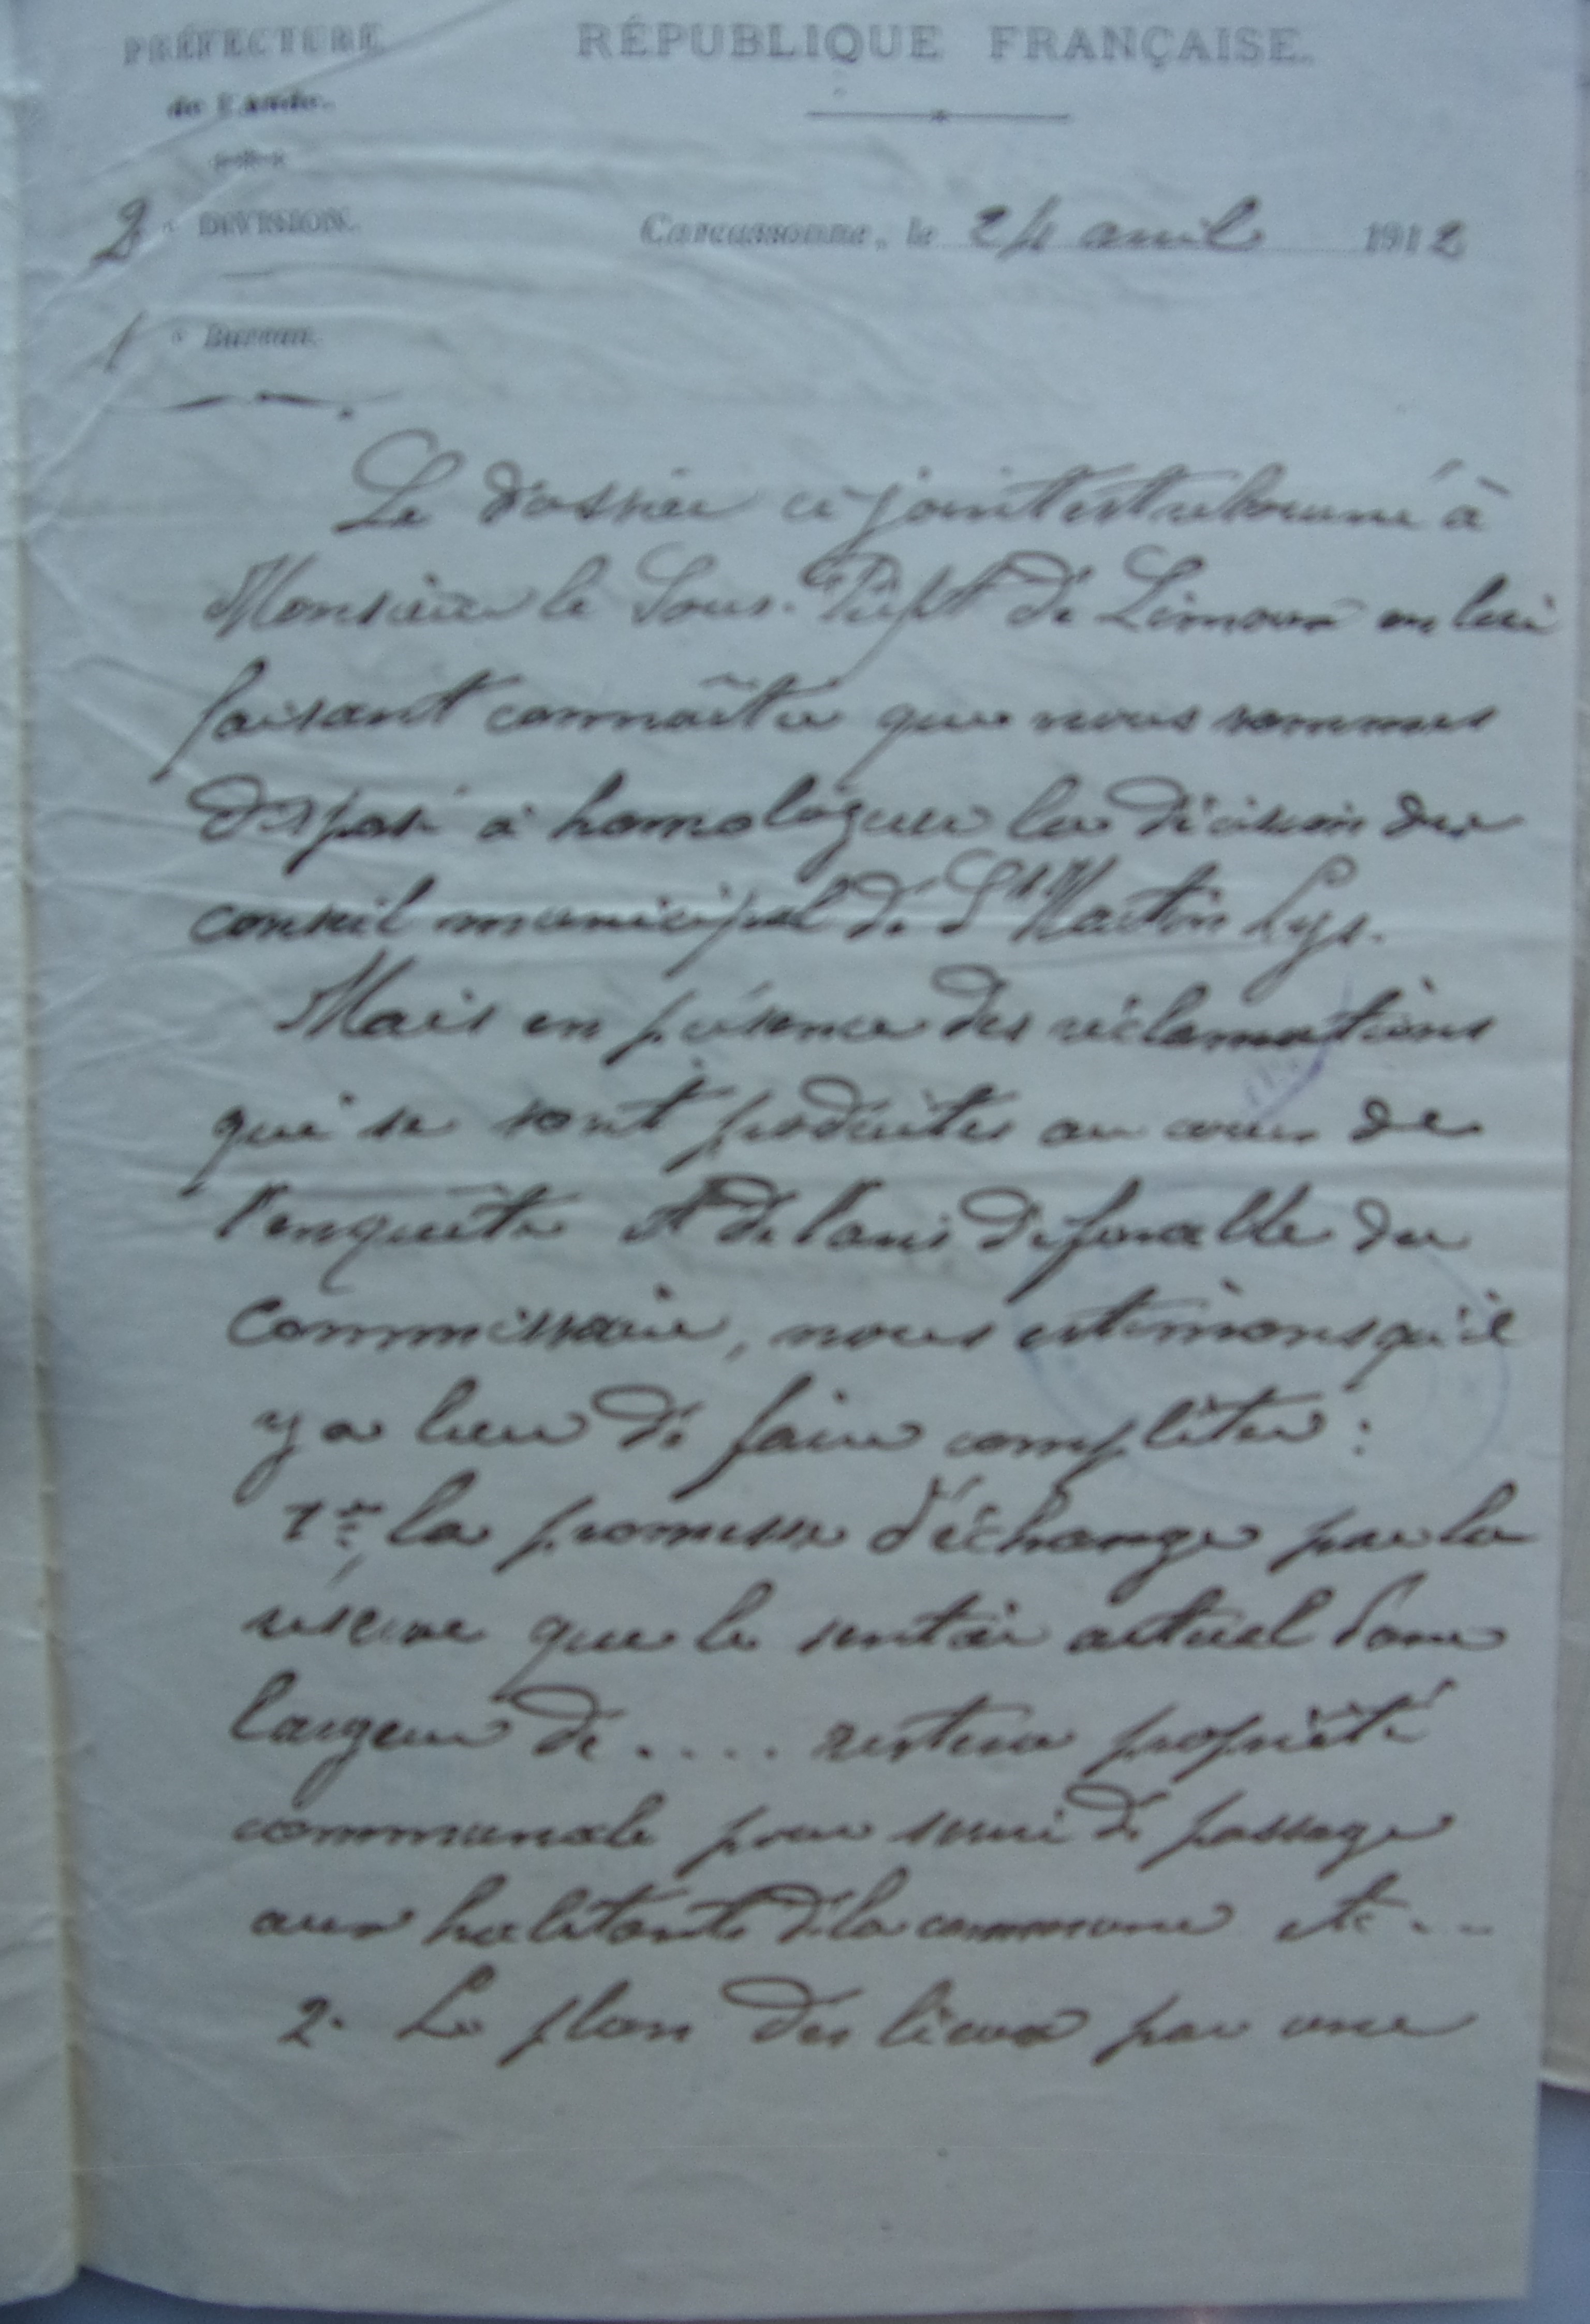 PRÉFECTURE
de l'Aude.
RÉPUBLIQUE FRANÇAISE.
2e DIVISION.
Carcassonne, le 24 avril 1912
1e Bureau.
Le dossier ci joint est retourné à
Monsieur le Sous-Préfet de Limoux en lui
faisant connaître que nous sommes
disposé à homologuer la décision du
conseil municipal de St Martin Lys.
Mais en présence des réclamations
qui se sont produites au cours de
l'enquête et de l'avis défavorable du
Commissaire, nous estimons qu'il
y a lieu de faire compléter :
1° la promesse d'échange par la
réserve que le sentier actuel d'une
largeur de .... restera propriété
communale pour servir de passage
aux habitants de la commune etc...
2° Le plan des lieux par une